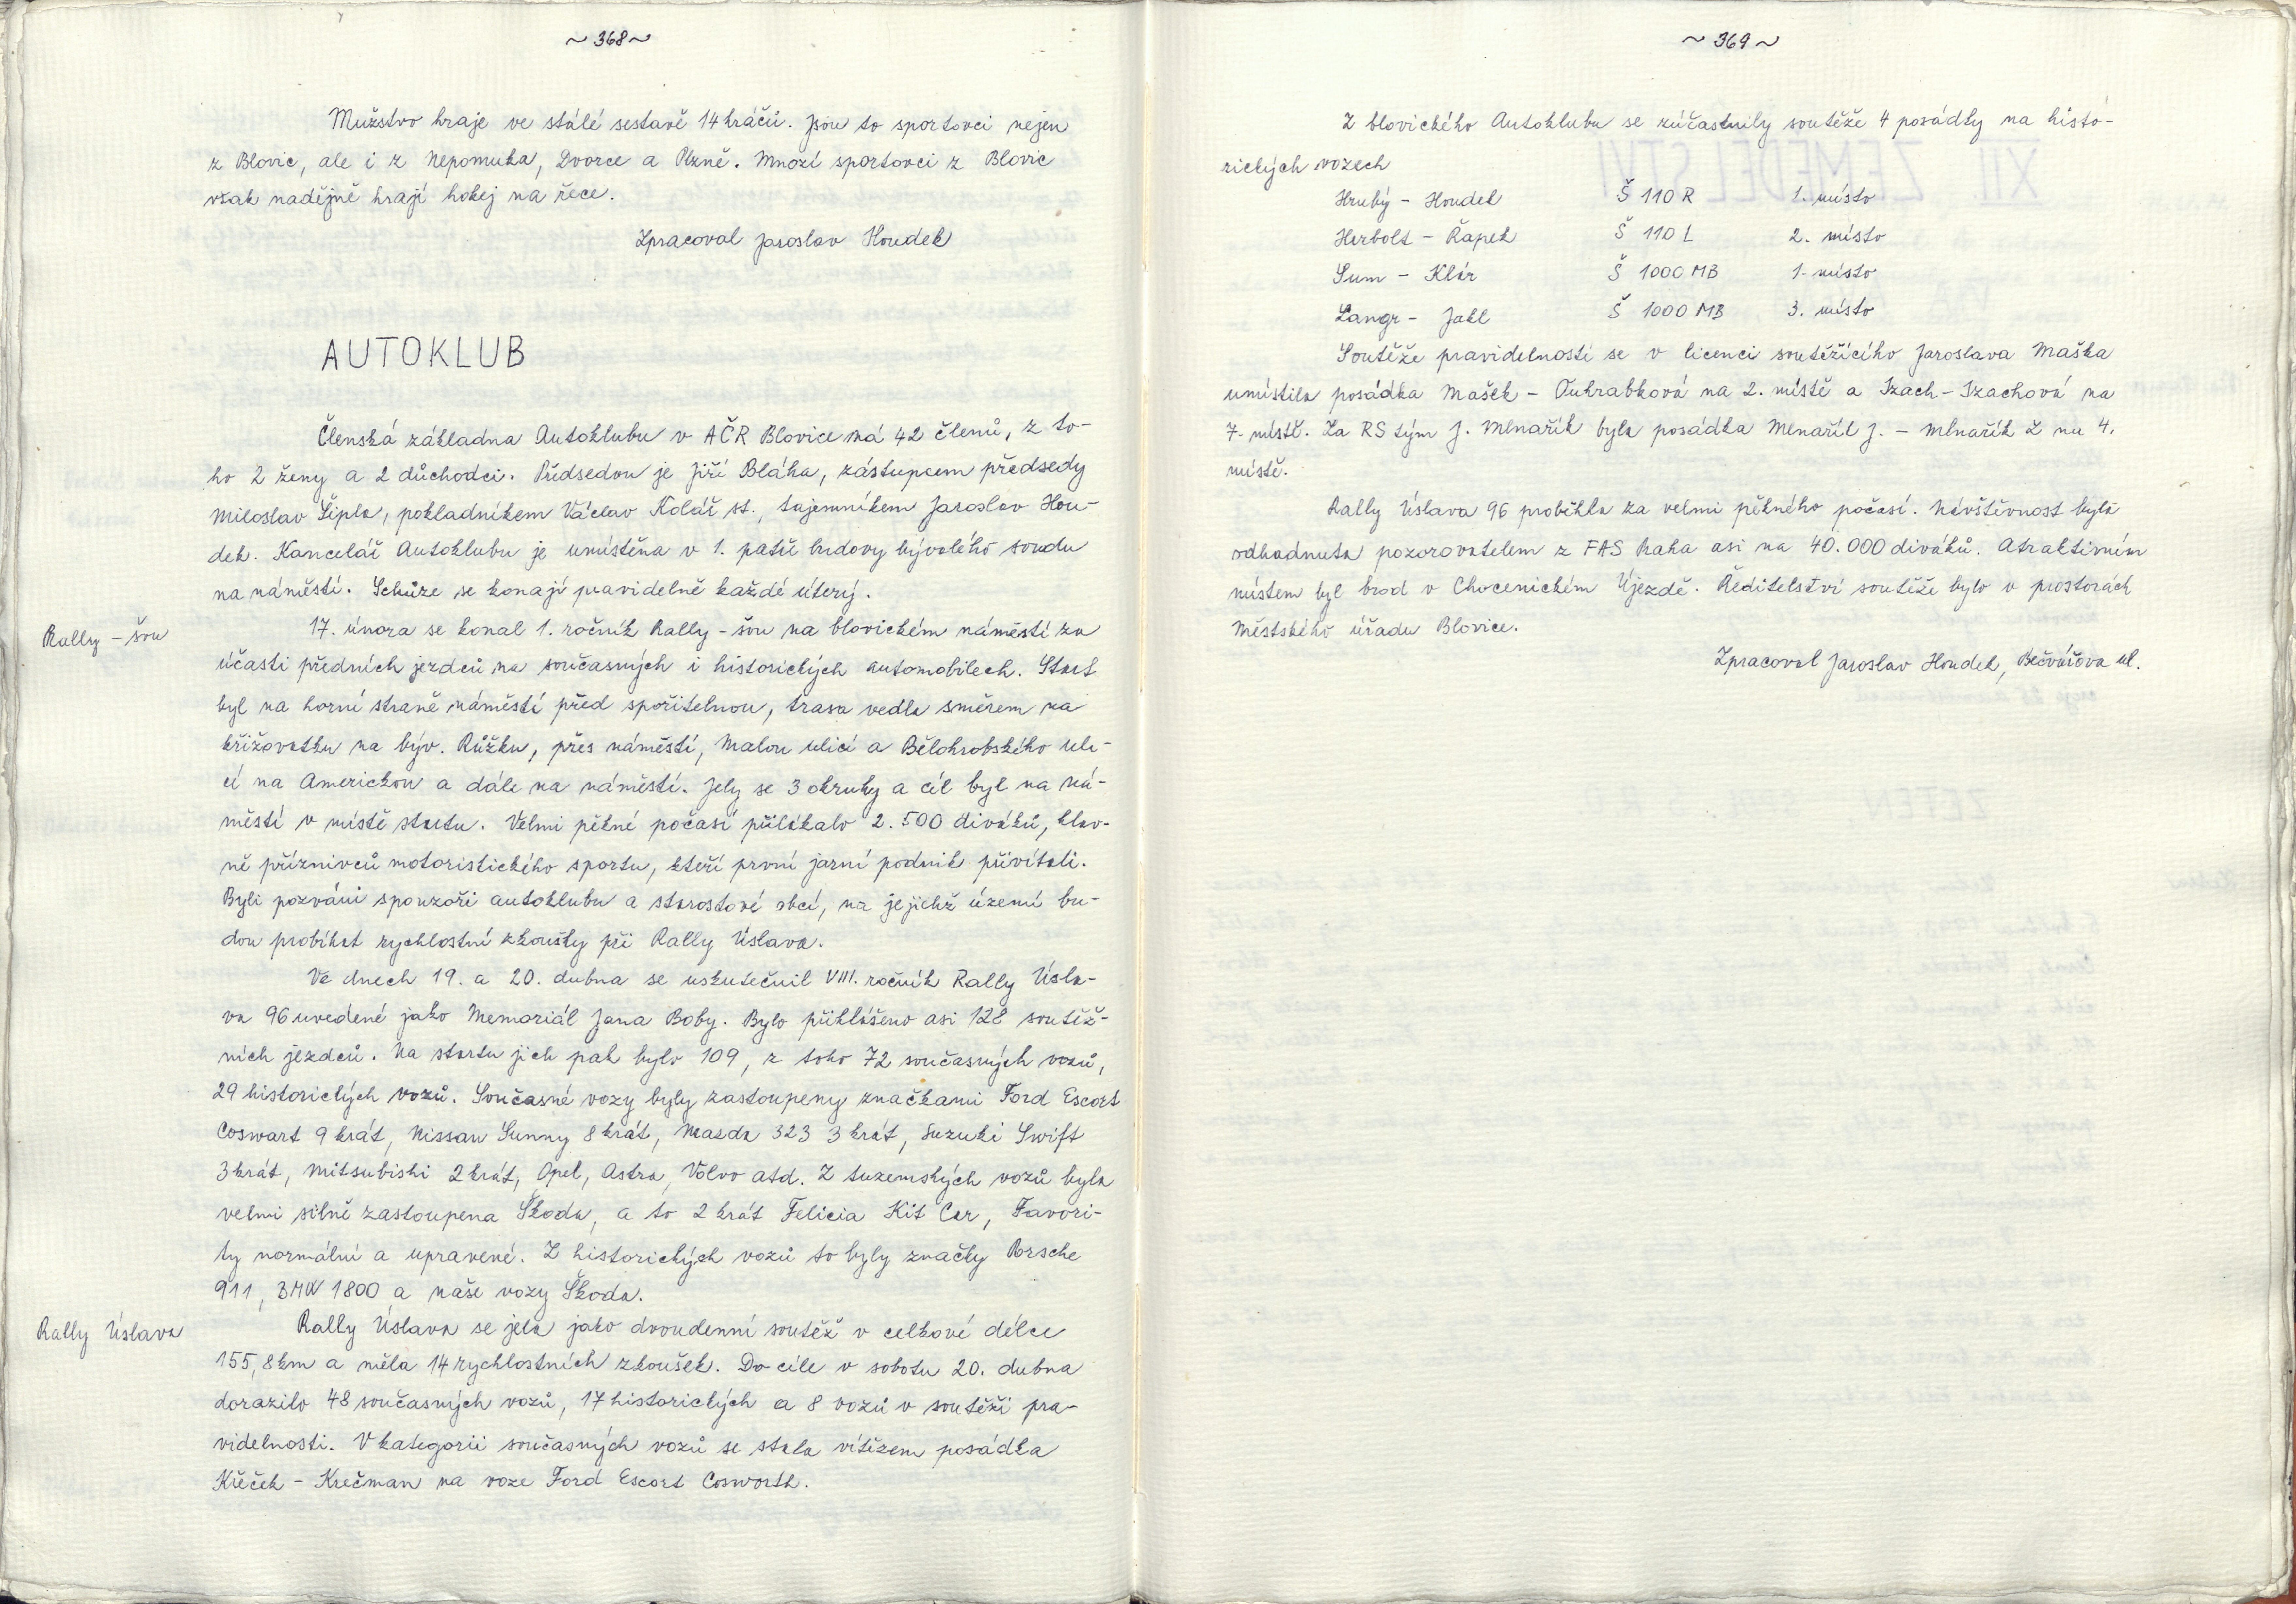 ~ 368 ~
Mužstvo hraje ve stálé sestavě 14 hráčů. Jsou to sportovci nejen
z Blovic, ale i z Nepomuka, Dvorce a Plzně. Mnozí sportovci z Blovic
však nadějně hrají hokej na řece.
Zpracoval Jaroslav Houdek
AUTOKLUB
Členská základna Autoklubu v AČR Blovice má 42 členů, z to-
ho 2 ženy a 2 důchodci. Předsedou je Jiří Bláha, zástupcem předsedy
Miloslav Šipla, pokladníkem Václav Kolář st., tajemníkem Jaroslav Hou-
dek. Kancelář Autoklubu je umístěna v 1. patře budovy bývalého soudu
na náměstí. Schůze se konají pravidelně každé úterý.
Rally - šou
17. února se konal 1. ročník Rally - šou na blovickém náměstí za
účasti předních jezdců na současných i historických automobilech. Start
byl na horní straně náměstí před spořitelnou, trasa vedla směrem na
křižovatku na býv. Růžku, přes náměstí, Malou ulicí a Bělohrobského uli-
cí na Americkou a dále na náměstí. Jely se 3 okruhy a cíl byl na ná-
městí v místě startu. Velmi pěkné počasí přilákalo 2.500 diváků, hlav-
ně příznivců motoristického sportu, kteří první jarní podnik přivítali.
Byli pozváni sponzoři autoklubu a starostové obcí, na jejichž území bu-
dou probíhat rychlostní zkoušky při Rally Úslava.
Ve dnech 19. a 20. dubna se uskutečnil VIII. ročník Rally Úsla-
va 96 uvedené jako Memoriál Jana Boby. Bylo přihlášeno asi 128 soutěž-
ních jezdců. Na startu jich pak bylo 109, z toho 72 současných vozů,
29 historických vozů. Současné vozy byly zastoupeny značkami Ford Escort
Coswart 9 krát, Nissan Sunny 8 krát, Mazda 323 3 krát, Suzuki Swift
3krát, Mitsubishi 2 krát, Opel, Astra, Volvo atd. Z tuzemských vozů byla
velmi silně zastoupena Škoda, a to 2 krát Felicia Kit Car, Favori-
ty normální a upravené. Z historických vozů to byly značky Porsche
911, BMW 1800 a naše vozy Škoda.
Rally Úslava
Rally Úslava se jela jako dvoudenní soutěž v celkové délce
155,8km a měla 14 rychlostních zkoušek. Do cíle v sobotu 20. dubna
dorazilo 48 současných vozů, 17 historických a 8 vozů v soutěži pra-
videlnosti. V kategorii současných vozů se stala vítězem posádka
Křeček - Krečman na voze Ford Escort Cosworth.
~ 369 ~
Z blovického Autoklubu se zúčastnily soutěže 4 posádky na histo-
rických vozech
Hrubý - Houdek Š 110 R 1. místo
Herbolt - Řapek Š 110 L 2. místo
Sum - Klár Š 1000 MB 1. místo
Langr - Jakl Š 1000 MB 3. místo
Soutěže pravidelnosti se v licenci soutěžícího Jaroslava Maška
umístila posádka Mašek - Ouhrabková na 2. místě a Izach - Izachová na
7. místě. Za RS tým J. Mlnařík byla posádka Mlnařík J. - Mlnařík Z na 4.
místě.
Rally Úslava 96 proběhla za velmi pěkného počasí. Návštěvnost byla
odhadnuta pozorovatelem z FAS Praha asi na 40.000 diváků. Atraktivním
místem byl brod v Chocenickém Újezdě. Ředitelství soutěže bylo v prostorách
Městského úřadu Blovice.
Zpracoval Jaroslav Houdek, Bečvářova ul.